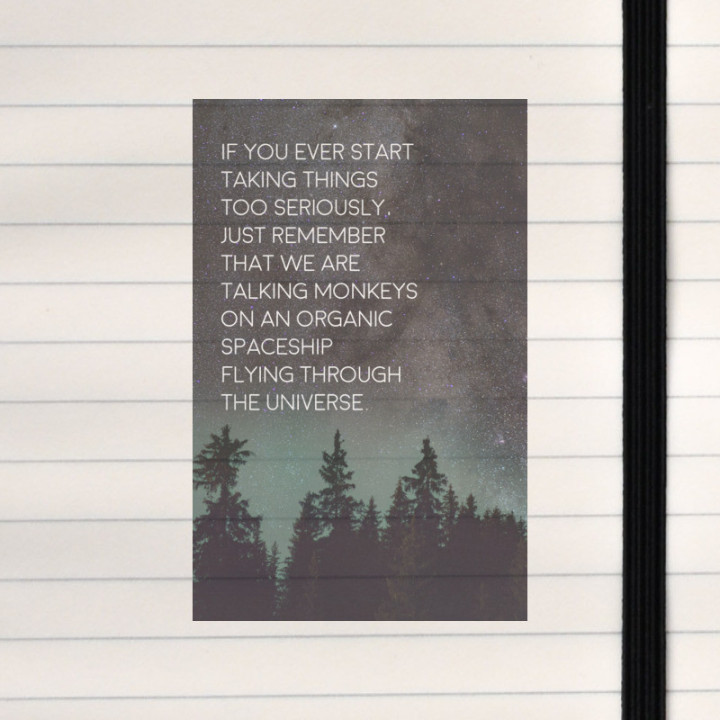 IF YOU EVER START
TAKING THINGS
TOO SERIOUSLY,
JUST REMEMBER
THAT WE ARE
TALKING MONKEYS
ON AN ORGANIC
SPACESHIP
FLYING THROUGH
THE UNIVERSE.